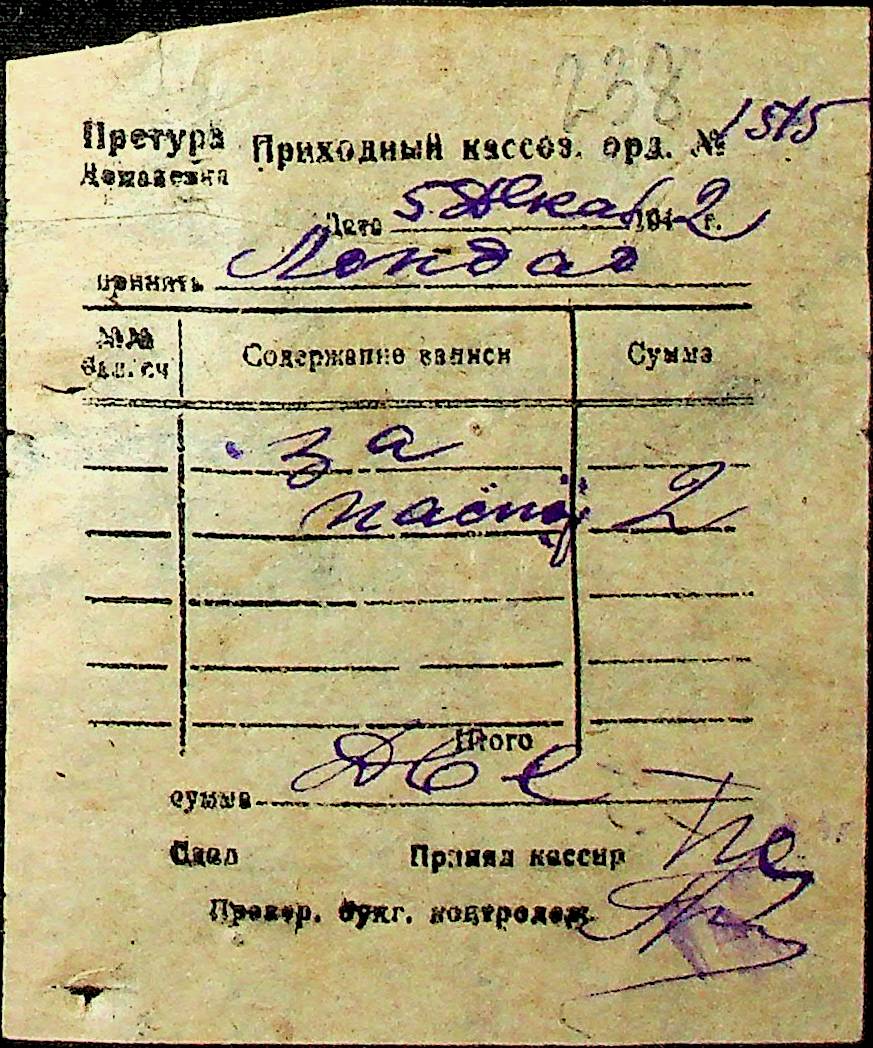 238
Претура Приходный кассов. орд. № 1515
Доманевка
Дата 5 Декаб 1942 г.
принять
№№ Содержание записи Сумма
бал. сч
за
паспор 2
Итого
сумма Две
Сдал Принял кассир
Провер. бухг. контролеж